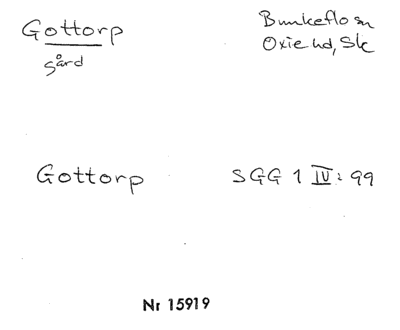 Gottorp
gård
Bunkeflo sn
Oxie hd, Sk
Gottorp
SGG 1 IV: 99
Nr 15919